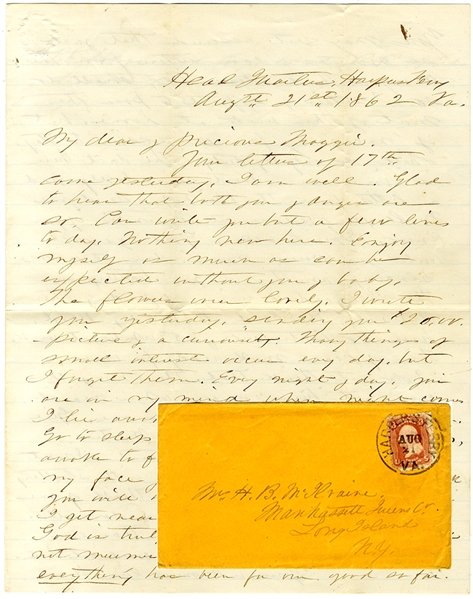 Head Quarters, Harpers Ferry
Augst 21st 1862 Va.
My dear & precious Maggie.
Your letter of 17th
came yesterday, I am well. Glad
to hear that both you & are
so. Can write you but a few lines
to day. Nothing new here. Enjoy
myself as much as can be
expected without you & baby.
The flowers were lovely. I wrote
you yesterday, sending you $20.00.
picture & a curiosity. Many things of
small interest occur every day, but
I forget them. Every night & day, you
are on my mind when night comes
I lie
Go to sleep
awake to f
my face
you will
I get near
God is tru
not murmu
everything has been for our good so far.
HARPERS
AUG
21
VA.
Mrs H. B. McIlvaine,
Manhassett Queens Co.
Long Island
N.Y.